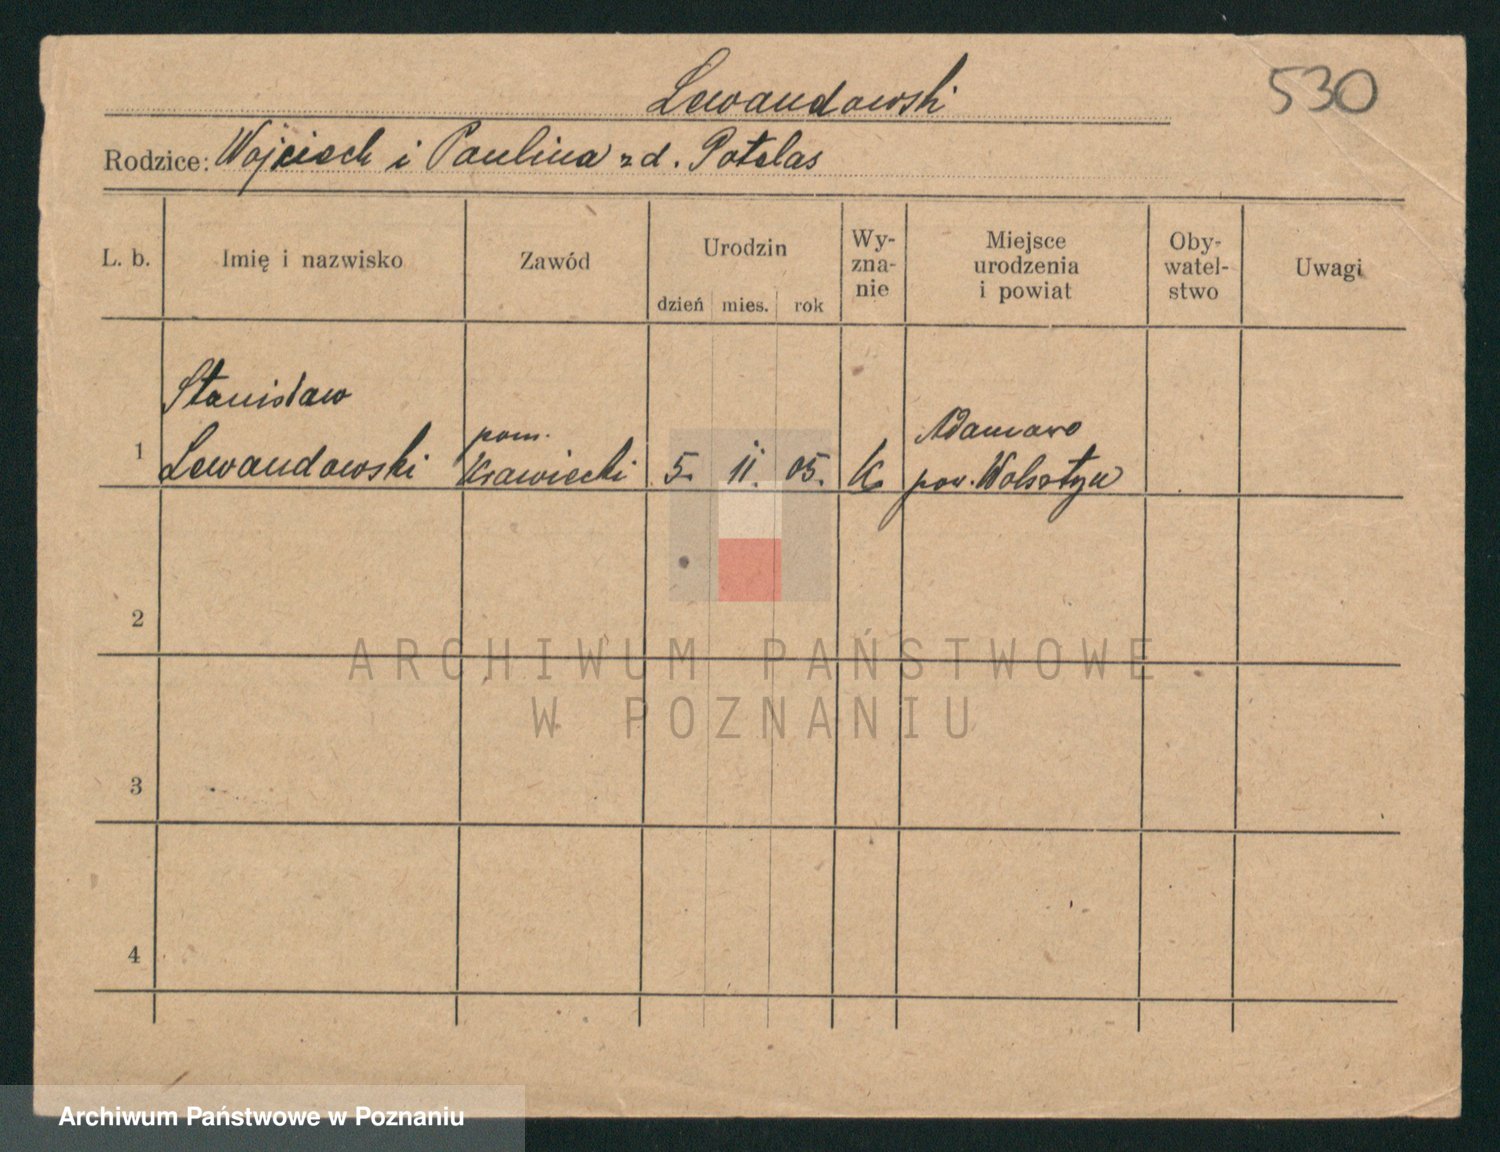 Lewandowski
530
Rodzice: Wojciech i Paulina zd. Potelas
L. b.
Imię i nazwisko
Zawód
Urodzin
dzień mies. rok
Wy-
zna-
nie
Miejsce
urodzenia
i powiat
Oby-
watel-
stwo
Uwagi
1
Stanisław
Lewandowski
pom.
Krawiecki
5. 11. 05.
K
Adamowo
pow. Wolsztyn
2
3
4
ARCHIWUM PAŃSTWOWE
W POZNANIU
Archiwum Państwowe w Poznaniu